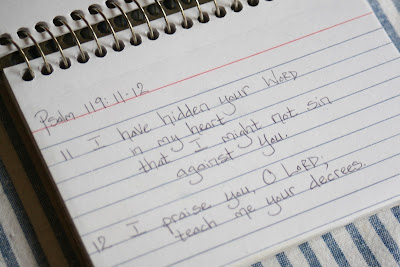 Psalm 119:11-12
11 I have hidden your WORD
in my heart
that I might not sin
against You.
12 I praise you, O LORD;
teach me your decrees.